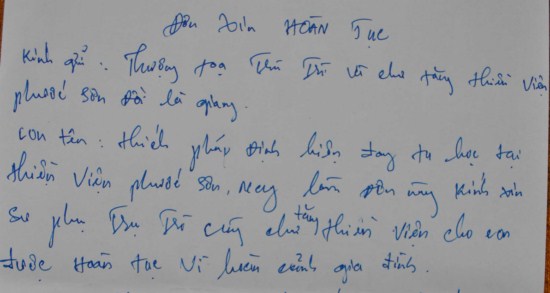 Đơn xin HOÀN TỤC
Kính gửi : Thượng toạ Trụ Trì và chư tăng thiền viện
phước sơn đồi lá giang.
con tên : thích pháp Định hiện đang tu học tại
thiền viện phước sơn, nay làm đơn này kính xin
sư phụ Trụ Trì cùng chư tăng thiền viện cho con
được Hoàn tục vì hoàn cảnh gia đình.